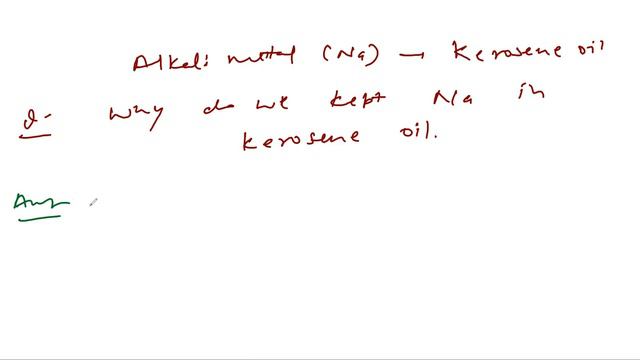 Alkali metal (Na) → Kerosene oil
Q- Why do we kept Na in
kerosene oil.
Ans